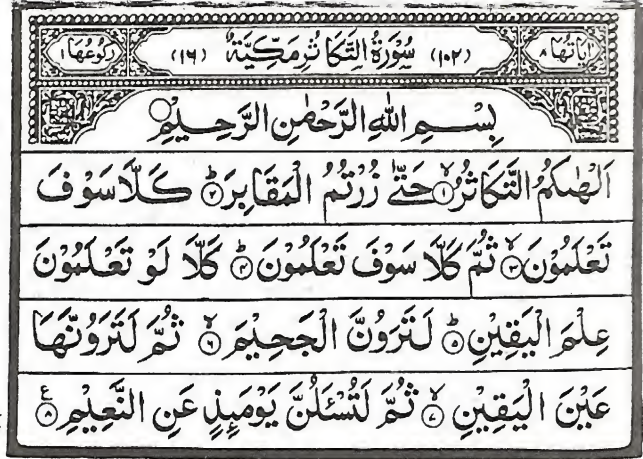 اٰيَاتُهَا ٨ (١٠٢) سُوْرَةُ التَّكَاثُرِ مَكِّيَّةٌ (١٦) رُكُوْعُهَا ١
بِسْمِ اللّٰهِ الرَّحْمٰنِ الرَّحِيْمِ
اَلْهٰىكُمُ التَّكَاثُرُ ۙ﴿١﴾ حَتّٰى زُرْتُمُ الْمَقَابِرَ ؕ﴿٢﴾ كَلَّا سَوْفَ
تَعْلَمُوْنَ ۙ﴿٣﴾ ثُمَّ كَلَّا سَوْفَ تَعْلَمُوْنَ ؕ﴿٤﴾ كَلَّا لَوْ تَعْلَمُوْنَ
عِلْمَ الْيَقِيْنِ ؕ﴿٥﴾ لَتَرَوُنَّ الْجَحِيْمَ ۙ﴿٦﴾ ثُمَّ لَتَرَوُنَّهَا
عَيْنَ الْيَقِيْنِ ۙ﴿٧﴾ ثُمَّ لَتُسْـَٔلُنَّ يَوْمَىِٕذٍ عَنِ النَّعِيْمِ ﴿٨﴾ ع